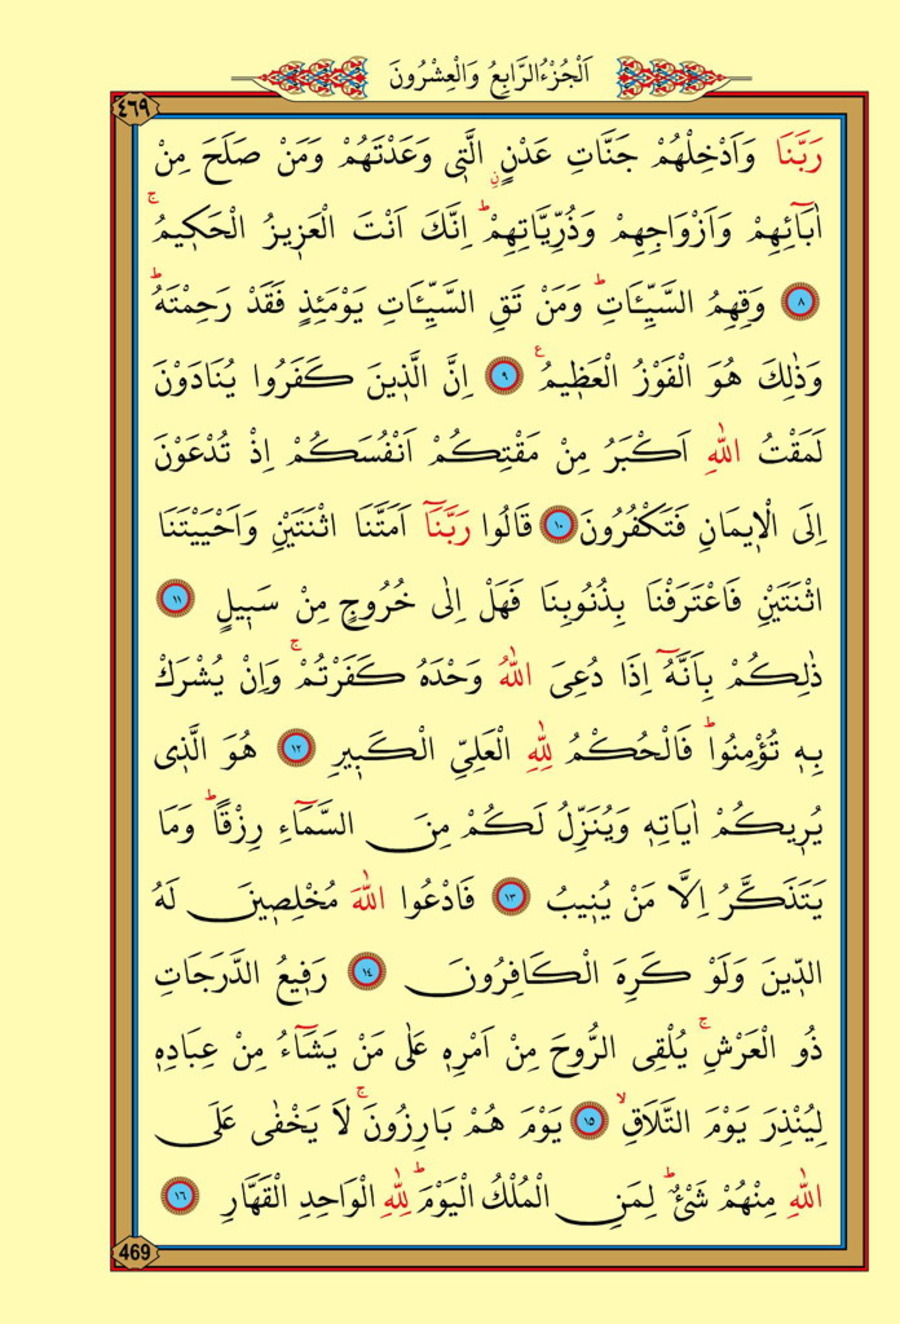 اَلْجُزْءُ الرَّابِعُ وَالْعِشْرُونَ
٤٦٩
رَبَّنَا وَاَدْخِلْهُمْ جَنَّاتِ عَدْنٍ الَّتٖى وَعَدْتَهُمْ وَمَنْ صَلَحَ مِنْ
اٰبَٓائِهِمْ وَاَزْوَاجِهِمْ وَذُرِّيَّاتِهِمْؕ اِنَّكَ اَنْتَ الْعَزٖيزُ الْحَكٖيمُۚ
٨ وَقِهِمُ السَّيِّـَٔاتِؕ وَمَنْ تَقِ السَّيِّـَٔاتِ يَوْمَئِذٍ فَقَدْ رَحِمْتَهُؕ
وَذٰلِكَ هُوَ الْفَوْزُ الْعَظٖيمُࣖ ٩ اِنَّ الَّذٖينَ كَفَرُوا يُنَادَوْنَ
لَمَقْتُ اللّٰهِ اَكْبَرُ مِنْ مَقْتِكُمْ اَنْفُسَكُمْ اِذْ تُدْعَوْنَ
اِلَى الْاٖيمَانِ فَتَكْفُرُونَ ١٠ قَالُوا رَبَّنَٓا اَمَتَّنَا اثْنَتَيْنِ وَاَحْيَيْتَنَا
اثْنَتَيْنِ فَاعْتَرَفْنَا بِذُنُوبِنَا فَهَلْ اِلٰى خُرُوجٍ مِنْ سَبٖيلٍ ١١
ذٰلِكُمْ بِاَنَّهُٓ اِذَا دُعِىَ اللّٰهُ وَحْدَهُ كَفَرْتُمْۚ وَاِنْ يُشْرَكْ
بِهٖ تُؤْمِنُواؕ فَالْحُكْمُ لِلّٰهِ الْعَلِىِّ الْكَبٖيرِ ١٢ هُوَ الَّذٖى
يُرٖيكُمْ اٰيَاتِهٖ وَيُنَزِّلُ لَكُمْ مِنَ السَّمَٓاءِ رِزْقًاؕ وَمَا
يَتَذَكَّرُ اِلَّا مَنْ يُنٖيبُ ١٣ فَادْعُوا اللّٰهَ مُخْلِصٖينَ لَهُ
الدّٖينَ وَلَوْ كَرِهَ الْكَافِرُونَ ١٤ رَفٖيعُ الدَّرَجَاتِ
ذُو الْعَرْشِۚ يُلْقِى الرُّوحَ مِنْ اَمْرِهٖ عَلٰى مَنْ يَشَٓاءُ مِنْ عِبَادِهٖ
لِيُنْذِرَ يَوْمَ التَّلَاقِۙ ١٥ يَوْمَ هُمْ بَارِزُونَۚ لَا يَخْفٰى عَلَى
اللّٰهِ مِنْهُمْ شَىْءٌؕ لِمَنِ الْمُلْكُ الْيَوْمَؕ لِلّٰهِ الْوَاحِدِ الْقَهَّارِ ١٦
469